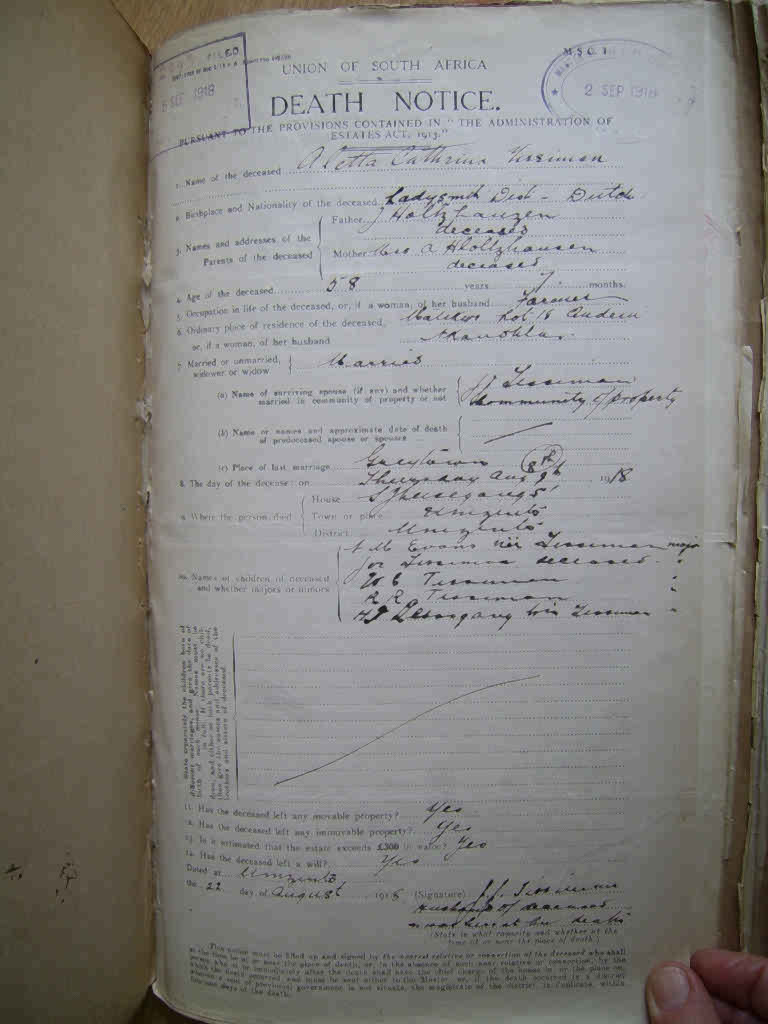 FILED
SEP 1918
M.S.C. 1
2 SEP 1918
UNION OF SOUTH AFRICA
DEATH NOTICE.
PURSUANT TO THE PROVISIONS CONTAINED IN "THE ADMINISTRATION OF
ESTATES ACT, 1913."
1. Name of the deceased Aletta Cathrina Tissiman
2. Birthplace and Nationality of the deceased Ladysmith Dist - Dutch
3. Names and addresses of the Parents of the deceased
Father J Holtzhauzen
deceased
Mother Mrs A Holtzhausen
deceased
4. Age of the deceased 58 years months.
5. Occupation in life of the deceased, or, if a woman, of her husband Farmer
6. Ordinary place of residence of the deceased, Lot 18
or, if a woman, of her husband
7. Married or unmarried, widower or widow Married
(a) Name of surviving spouse (if any) and whether
married in community of property or not
J J Tissiman
Community of Property
(b) Name or names and approximate date of death
of predeceased spouse or spouses
(c) Place of last marriage Greytown
8. The day of the decease: on Thursday Aug 8th 1918
9. Where the person died
House
Town or place Umzinto
District Umzinto
10. Names of children of deceased
and whether majors or minors
M Evans Tissiman major
Tissiman deceased
Tissiman
R R Tissiman
Tissiman
State separately the children born of
different marriages, and give the date of
birth of each minor. Names must be
in full. If there are no chil-
dren, and either or both parents be dead,
then give the names and addresses of the
brothers and sisters of deceased.
11. Has the deceased left any movable property? Yes
12. Has the deceased left any immovable property? Yes
13. Is it estimated that the estate exceeds £300 in value? Yes
14. Has the deceased left a will? Yes
Dated at Umzinto
the 22 day of August 1918 (Signature) J.J. Tissiman
Husband of deceased
death
(State in what capacity and whether at the
time at or near the place of death.)
This notice must be filled up and signed by the nearest relative or connection of the deceased who shall
at the time be at or near the place of death, or, in the absence of such near relative or connection, by the
person who at or immediately after the death shall have the chief charge of the house in or the place on,
which the death occurred and must be sent either to the Master or, if the death occurred in a district
where a seat of provincial government is not situate, the magistrate of the district in duplicate, within
fourteen days of the death.